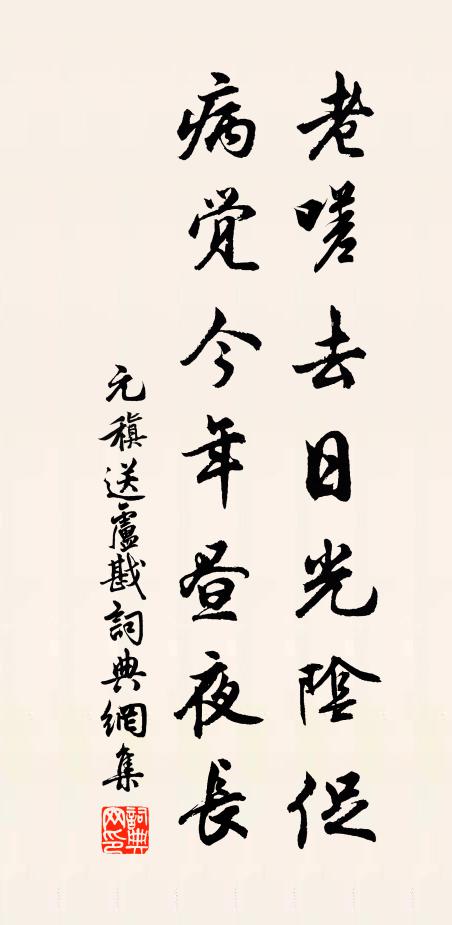 老嗟去日光陰促
病觉今年昼夜長
元稹送盧戡詞典網集
詞典网印